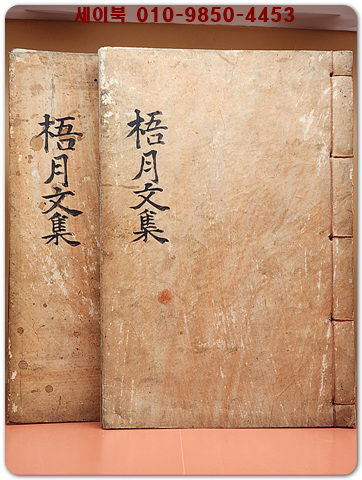 세이북 010-9850-4453
梧月文集
梧月文集